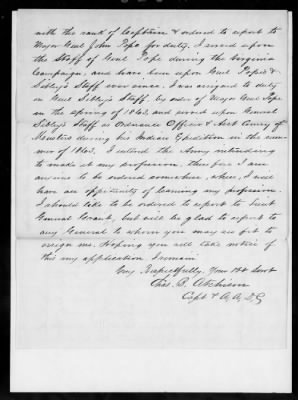 with the rank of Captain & ordered to report to
Major Genl John Pope for duty. I served upon
the Staff of Genl Pope during the Virginia
Campaign, and have been upon Genl Pope's &
Sibley's Staff ever since. I was assigned to duty
on Genl Sibley's Staff, by order of Major Genl Pope
in the spring of 1863, and served upon General
Sibley's Staff as Ordnance Officer & Asst Comy of
Musters during his Indian Expedition in the sum-
mer of 1863. I entered the Army intending
to make it my profession, therefore I am
anxious to be ordered somewhere, where I will
have an opportunity of learning my profession
I should like to be ordered to report to Lieut
General Grant, but will be glad to report to
any General to whom you may see fit to
assign me. Hoping you will take notice of
this my application I remain
Very Respectfully, Your Obt Servt
Chas. B. Atchison
Capt & A. A. D. C